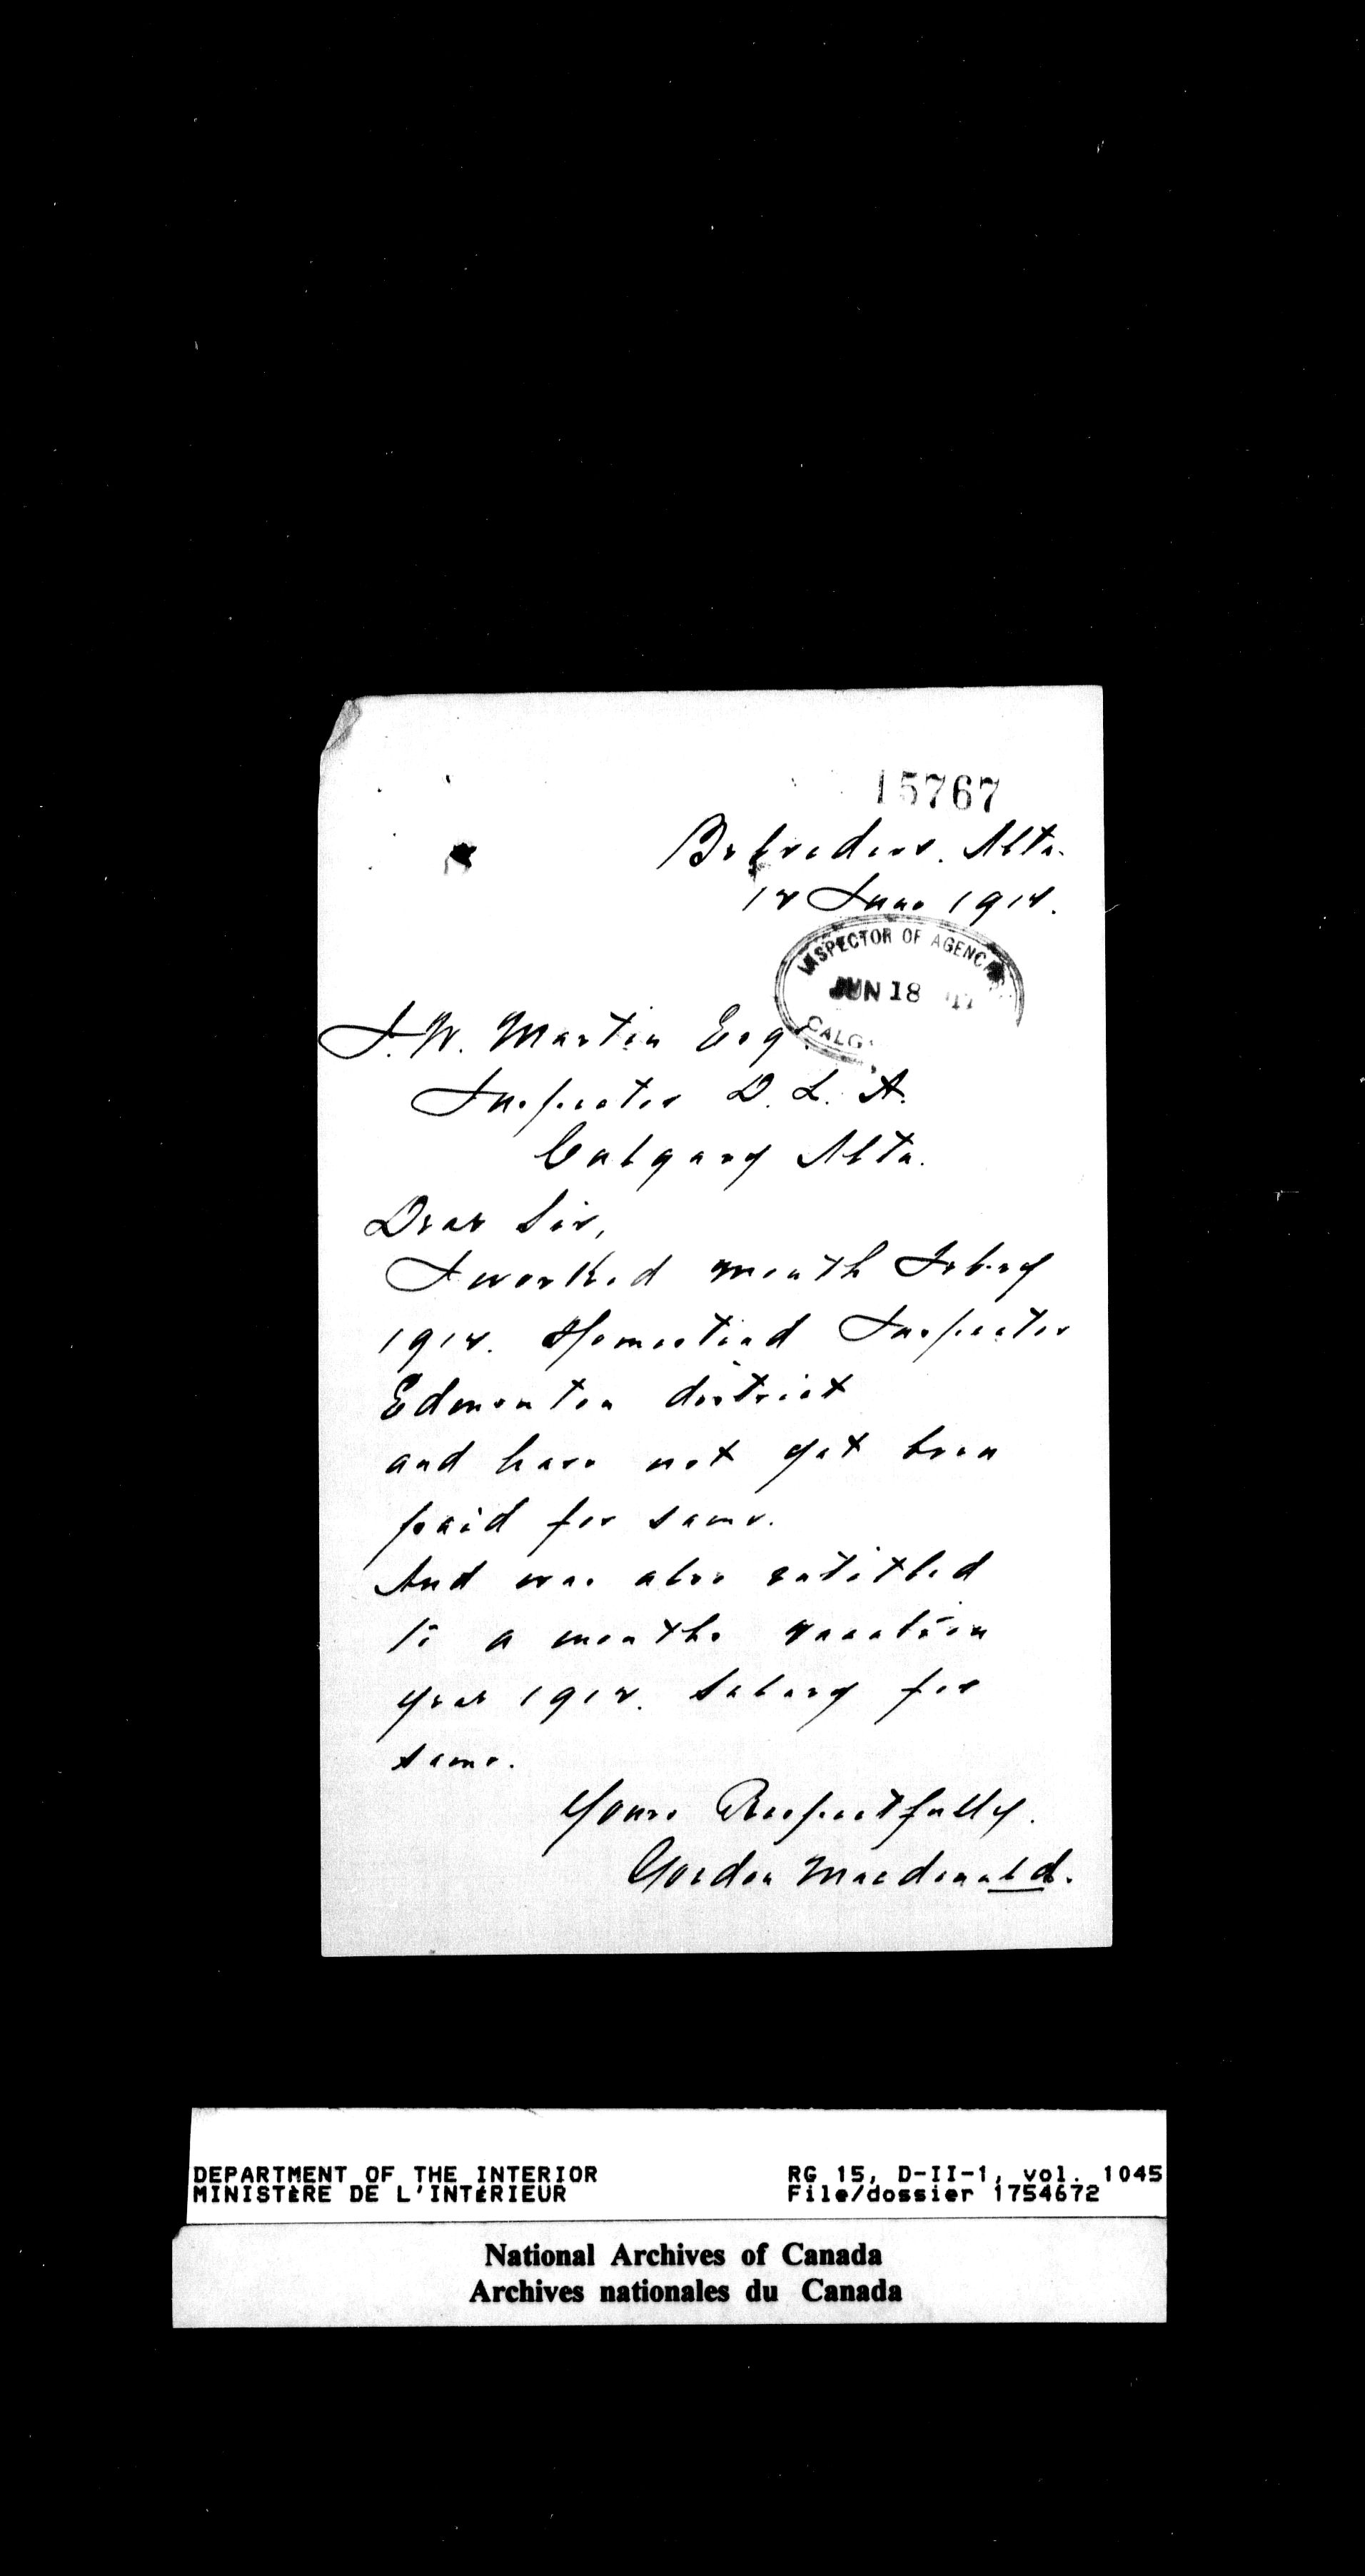 15767
Belvedere. Alta.
12 June 1912.
INSPECTOR OF AGENCIES
JUN 18
CALG
J. W. Martin Esq
Inspector D. L. A.
Calgary Alta.
Dear Sir,
I worked month Febry
1912. Homestead Inspector
Edmonton district
and have not yet been
paid for same.
And was also entitled
to a months vacation
year 1912. Salary for
same.
Yours Respectfully.
Gordon Macdonald.
DEPARTMENT OF THE INTERIOR
MINISTÈRE DE L'INTÉRIEUR
RG 15, D-II-1, vol. 1045
File/dossier 1754672
National Archives of Canada
Archives nationales du Canada